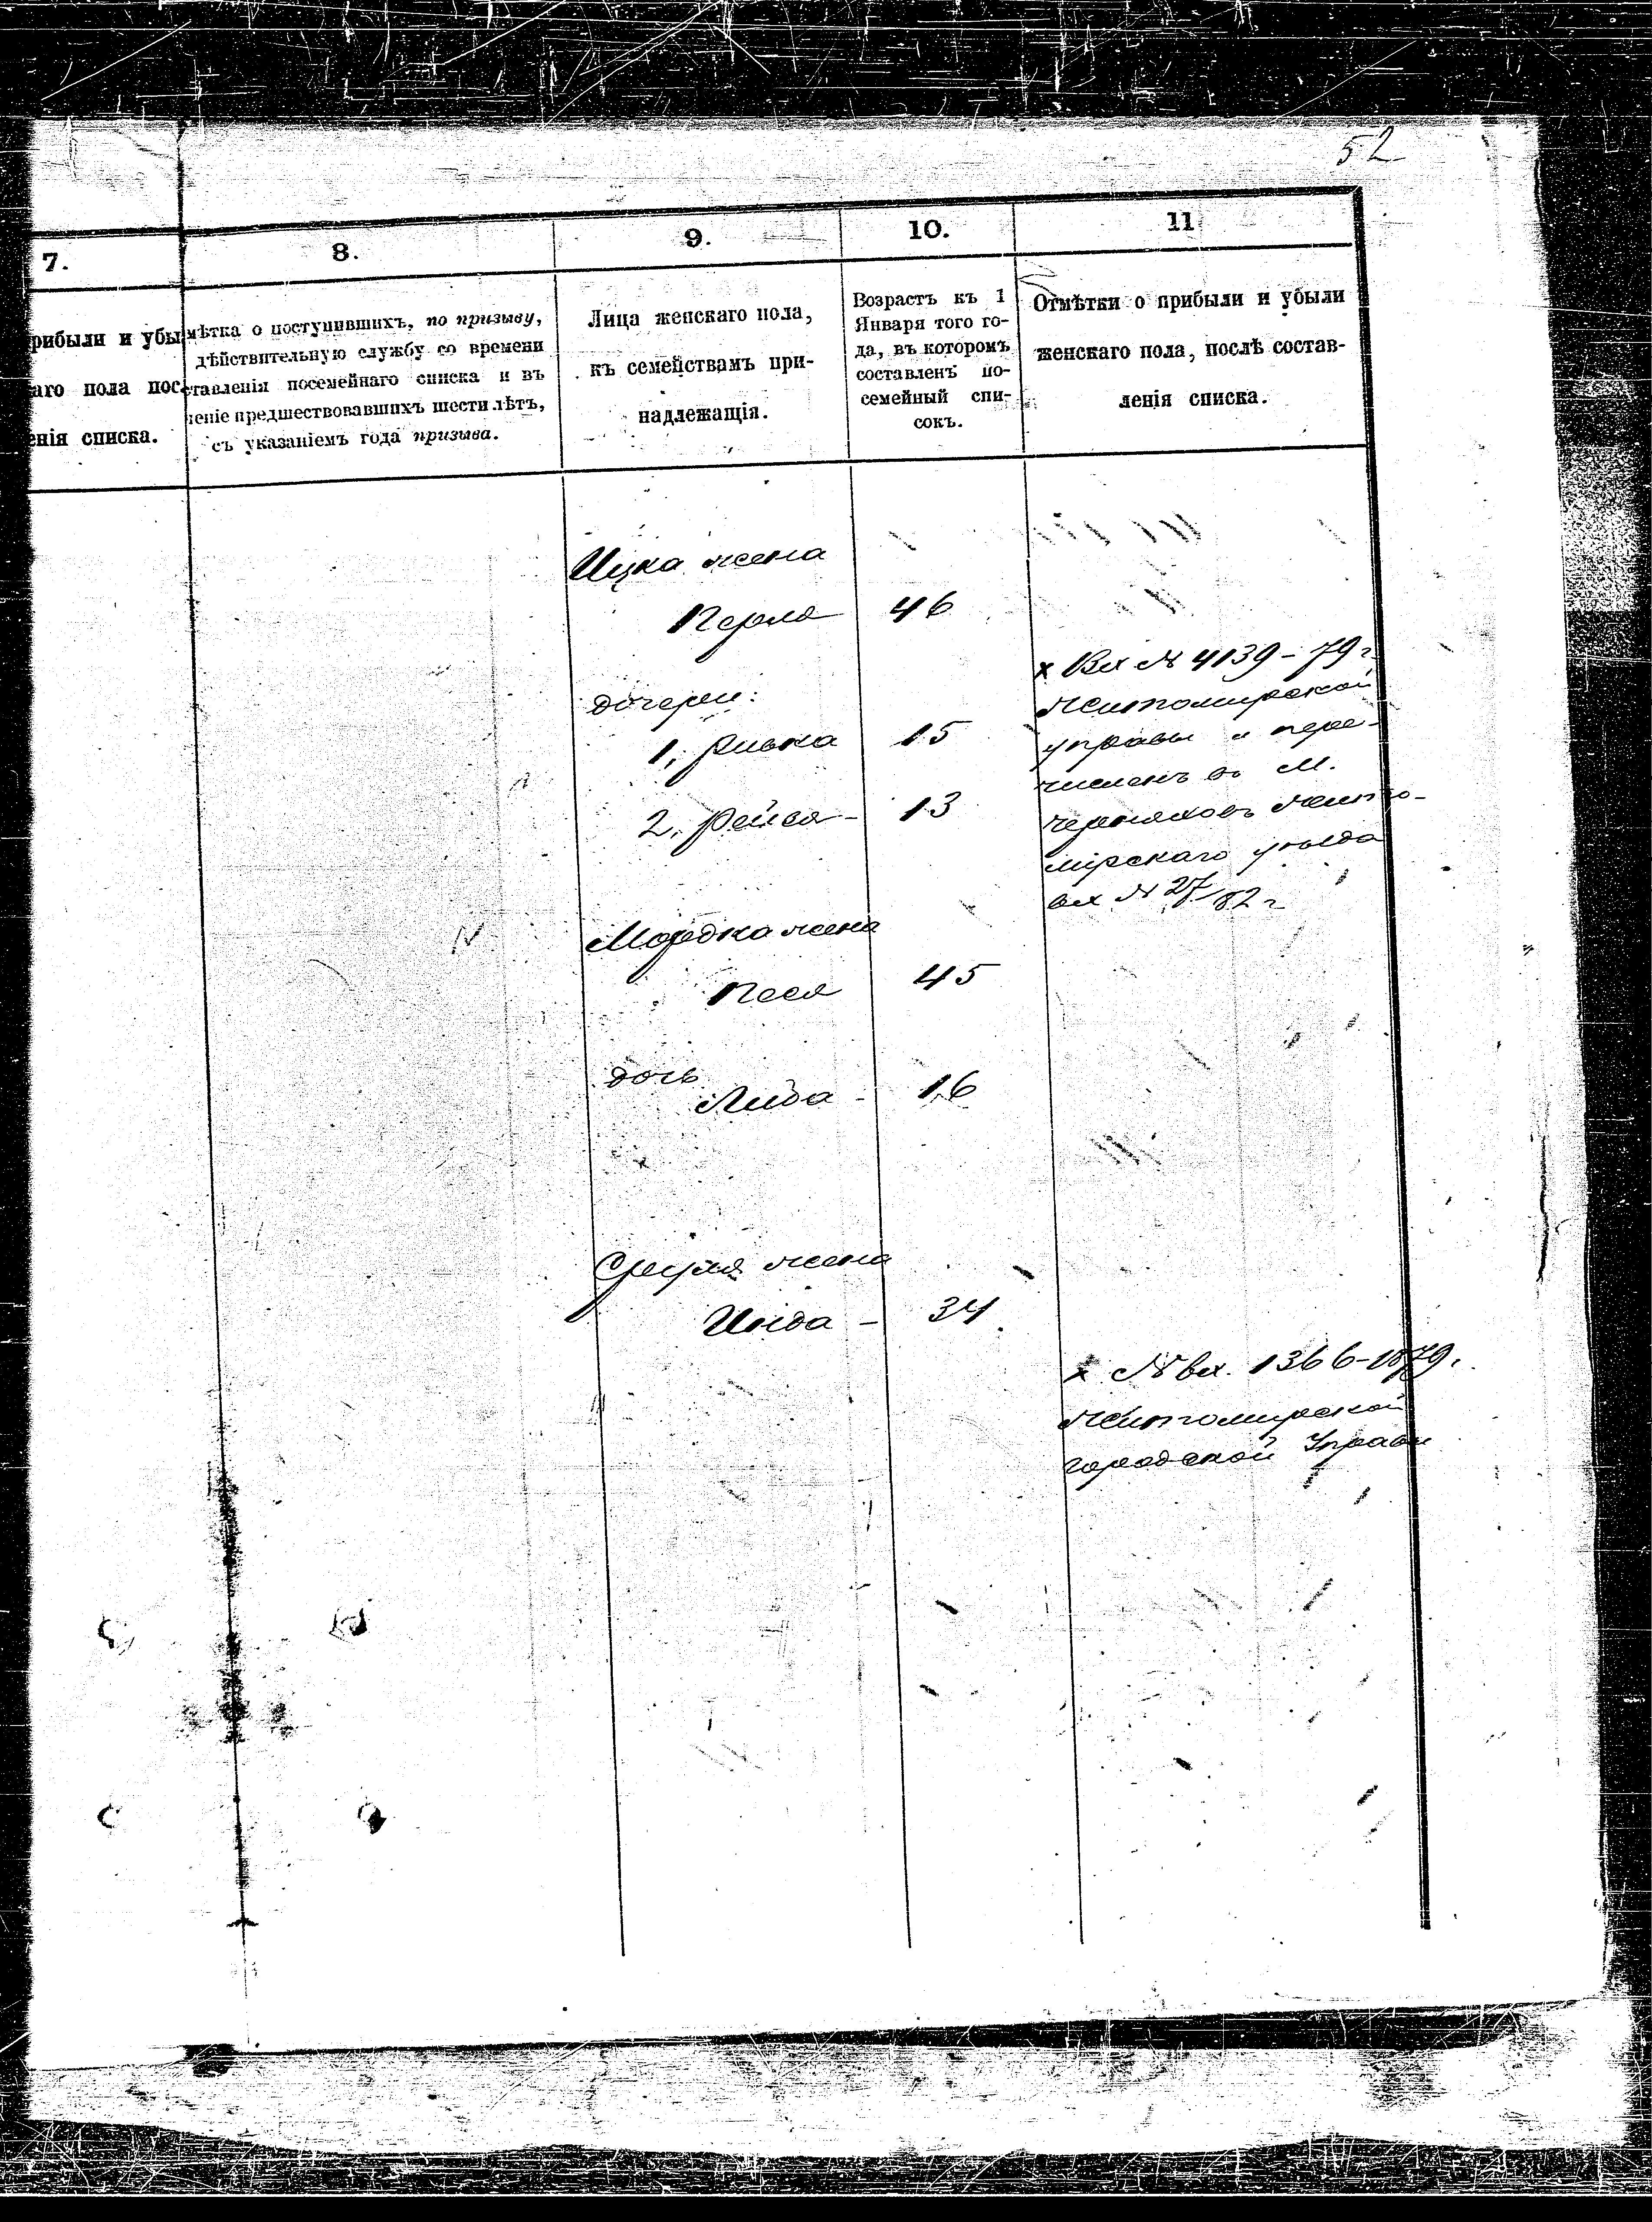 52
7.
8.
9.
10.
11
рибыли и убы
аго пола пос
енія списка.
мѣтка о поступившихъ, по призыву,
дѣйствительную службу со времени
ставленія посемейнаго списка и въ
еніе предшествовавшихъ шести лѣтъ,
съ указаніемъ года призыва.
Лица женскаго пола,
къ семействамъ при-
надлежащія.
Возрастъ къ 1
Января того го-
да, въ которомъ
составленъ по-
семейный спи-
сокъ.
Отмѣтки о прибыли и убыли
женскаго пола, послѣ состав-
ленія списка.
Ицка жена
Перля 46
дочери:
1, Ривка 15
2, Рейся - 13
х Вх № 4139 - 79 г.
Житомирской
управы и пере-
численъ въ м.
Черняховъ Жито-
мірскаго уѣзда
вх № 27/82 г
Мордка жена
Песя 45
дочь
Либа - 16
Сруля жена
Инда - 34
х № вх. 1366-1879.
Житомирской
городской Управы